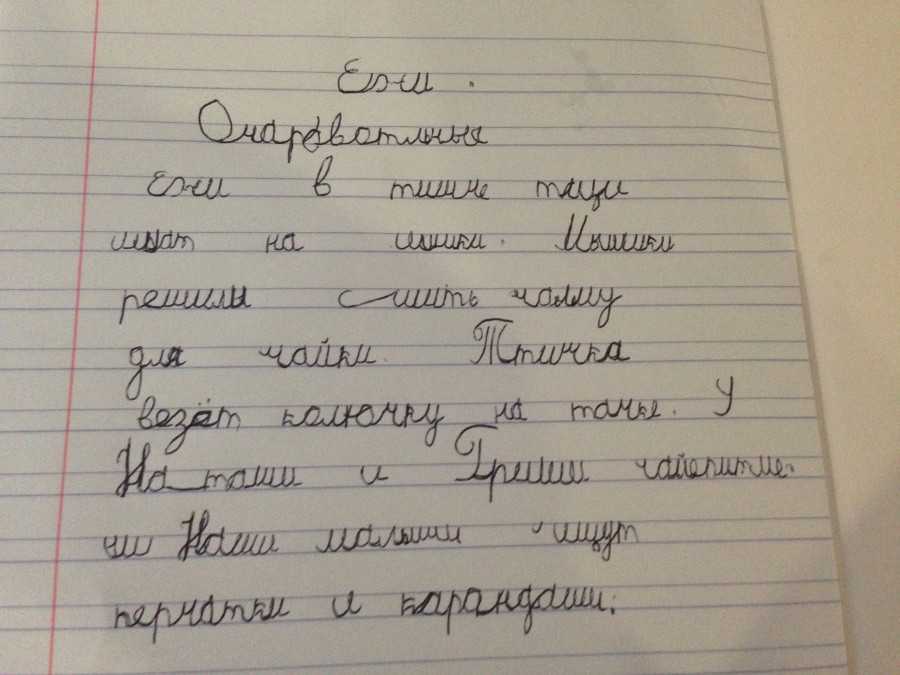 Ежи.
Очаровотльные
Ежи в тишне тащи
шыат на шишки. Мышки
решилы сшить чалму
для чайки. Птичка
везёт колючку на тачке. У
Наташи и Гриши чайепитие.
Наши малыши ищут
перчатки и карандаши.